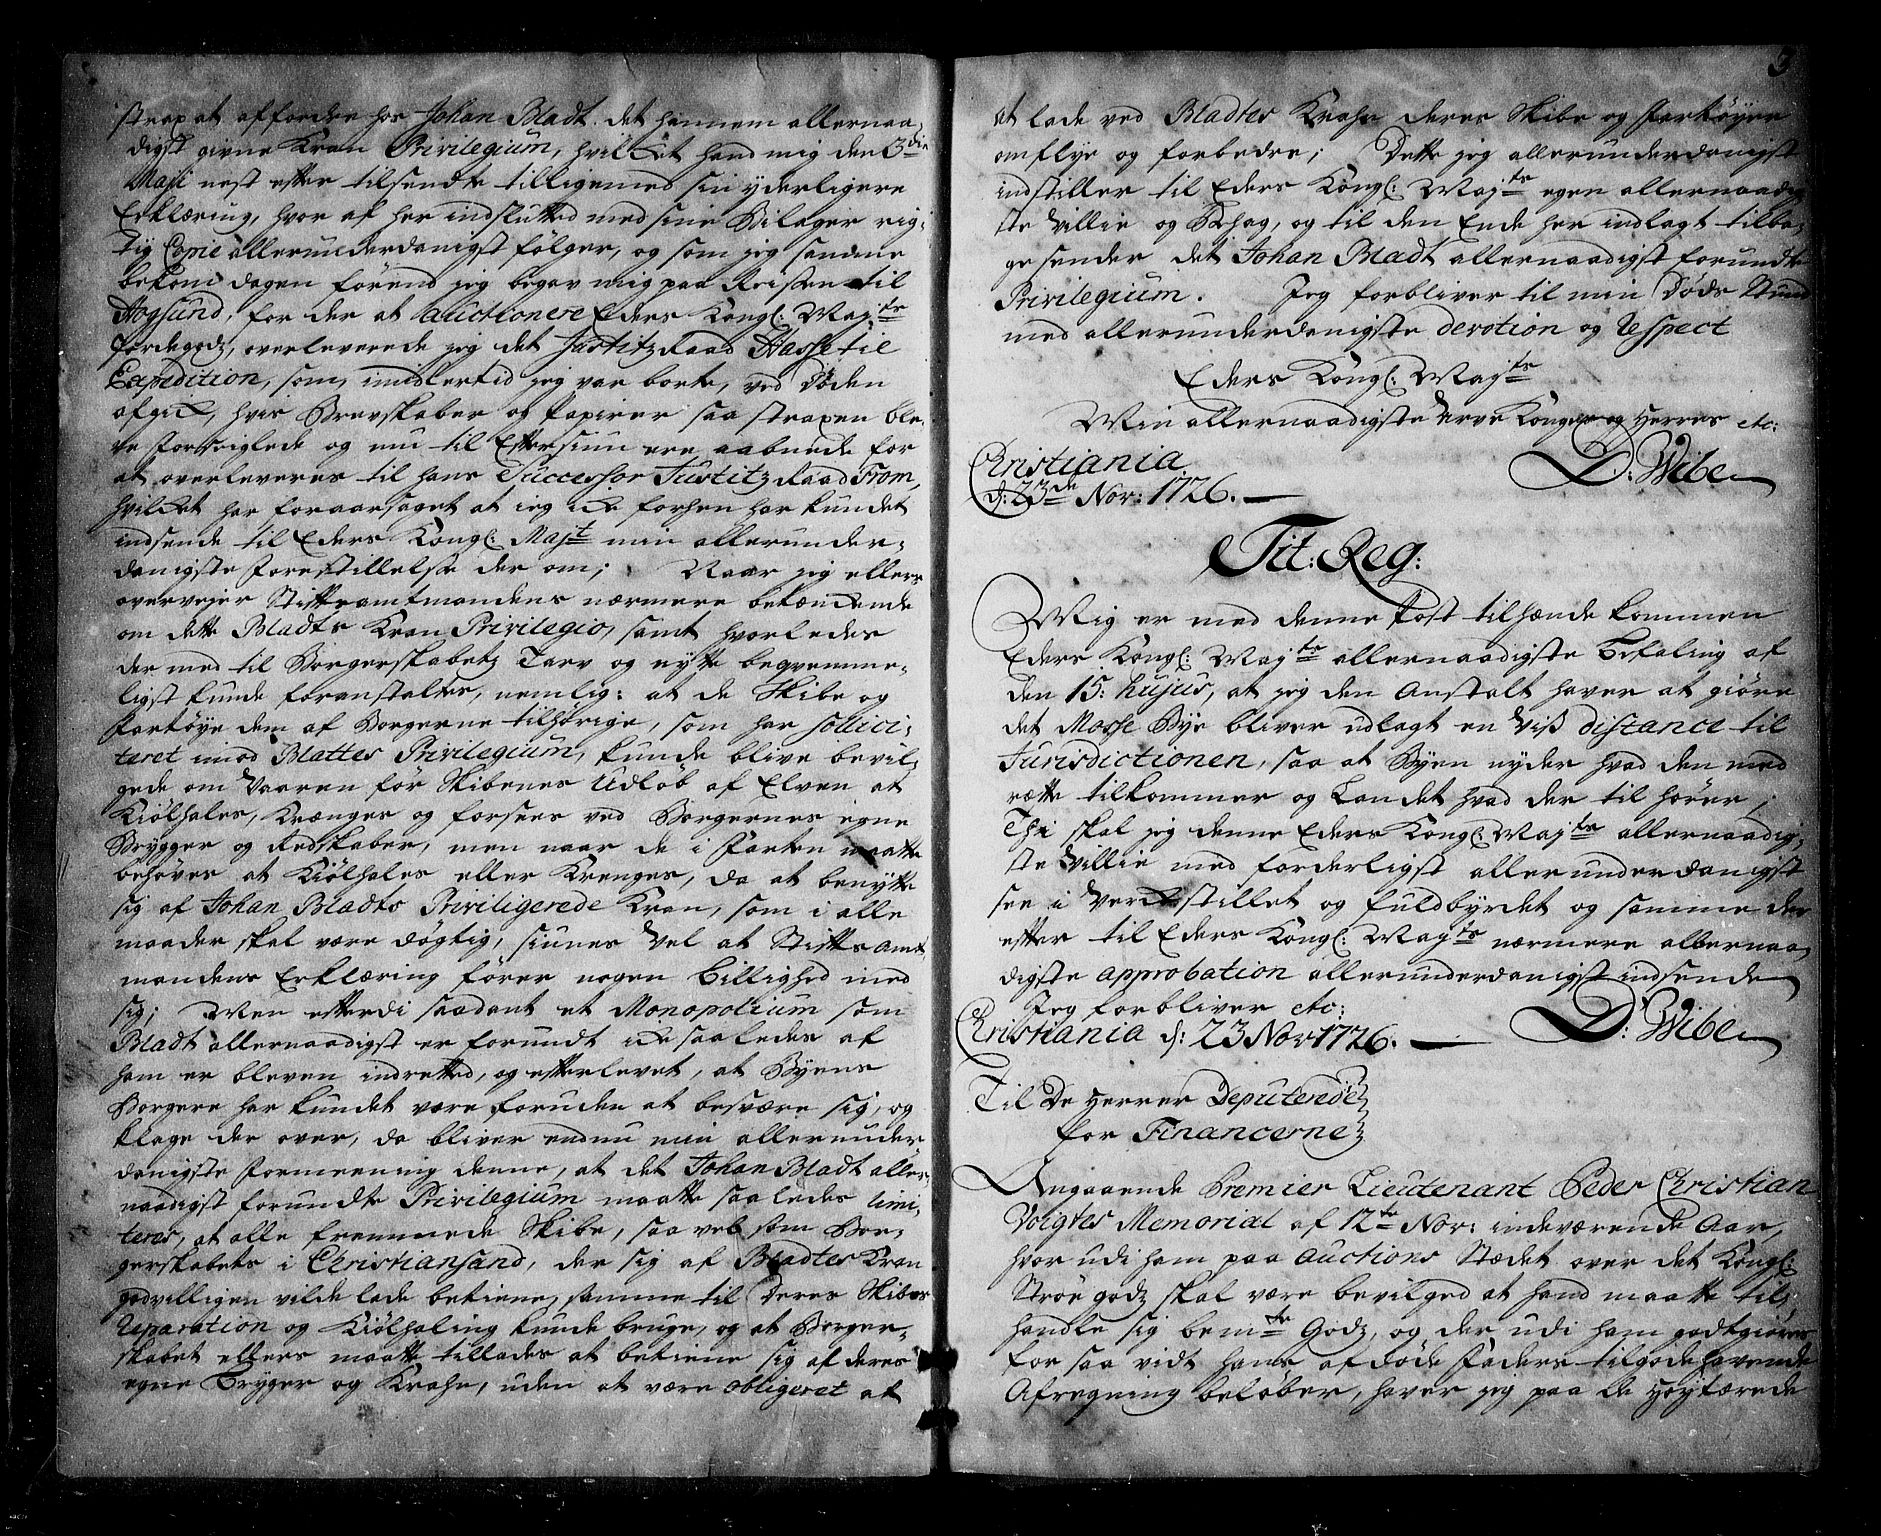 strax at affordre hos Johan Bladt det hannem allernaa¬
digst givne Kran Privilegium, hvilket hand mig den 3die
Maji nest efter tilsendte tilligemed sin yderligere
Erklæring, hvor af her indslutted med sine Bilager rig¬
tig Copie allerunderdanigst følger, og som jeg samme
bekom dagen førend jeg begav mig paa Reissen til
Hogsund, for der at auctionere Eders Kongl: Majts
Jordegodz, overleverede jeg det Justitz Raad Hasse til
Expedition, som, imidlertid jeg var borte, ved Døden
afgick, hvis Brevskaber og Papirer saa straxen ble¬
ve forseiglede og nu til Eftersiun ere aabnede for
at overleveres til hans Successor Justitz Raad From,
hvilket har foraarsaget at ieg icke forhen har kundet
indsende til Eders Kongl: Majt min allerunder¬
danigste Forestillelse der om; Naar jeg ellers
overvejer Stiftsamtmandens nærmere betænckende
om dette Bladts Kran Privilegio, samt hvorledes
der med til Borgerskabetz Tarv og nytte beqvemme¬
ligst kunde foranstaltes, nemlig: at de Skibe og
Fartøye dem af Borgerne tilhørige, som har sollici¬
teret imod Blattes Privilegium, kunde blive bevil¬
gede om Vaaren før Skibenes Udløb af Elven at
Kiølhales, Krænges og forsees ved Borgernes egne
Brygger og Redskaber, men naar de i Farten maatte
behøves at Kiølhales eller Krenges, da at benytte
sig af Johan Bladts Priviligerede Kran, som i alle
maader skal være døgtig, siunes vel at Stiftsamt¬
mandens Erklæring fører nogen Billighed med
sig; Men efterdi saadant et Monopolium som
Bladt allernaadigst er forundt icke saaledes af
ham er bleven indretted, og efterlevet, at Byens
Borgere har kundet være foruden at besvære sig, og
klage der over, da bliver endnu min allerunder
danigste Formeening denne, at det Johan Bladt aller¬
naadigst forundte Privilegium maatte saaledes limi¬
teres, at alle fremmede Skibe, saa vel som Bor¬
gerskabets i Christiansand, der sig af Bladtes Kran
godvilligen vilde lade betiene, samme til Deres Skibes
Reparation og Kiølhaling kunde bruge, og at Borger¬
skabet ellers maatte tillades at betiene sig af deres
egne Brygger og Krahn, uden at være obligeret at
3
at lade ved Bladtes Krahn deres Skibe og Fartøyer
omflye og forbedre; Dette jeg allerunderdanigst
indstiller til Eders Kongl: Majts egen allernaadig¬
ste Villie og Behag, og til den Ende her indlagt tilba¬
ge sender det Johan Bladt allernaadigst forundte
Privilegium. Jeg forbliver til min Døds Stund
med allerunderdanigste devotion og Respect
Eders Kongl: Majts
Min allernaadigste Arve Konges og Herres etc:
Christiania
d: 23de Nov: 1726. D: Wibe
Tit: Reg:
Mig er med denne Post tilhænde kommen
Eders Kongl: Majts allernaadigste Befaling af
den 15: hujus, at jeg den Anstalt haver at giøre
det Mosse Bye bliver udlagt en viss distance til
Jurisdictionen, saa at Byen nyder hvad den med
rætte tilkommer og Landet hvad der til hører,
Thi skal jeg denne Eders Kongl: Majts allernaadig¬
ste Villie med forderligst allerunderdanigst
see i Verck stillet og fuldbyrdet og samme der
efter til Eders Kongl: Majts nærmere allernaa¬
digste approbation allerunderdanigst indsende
Jeg forbliver etc:
Christiania d: 23 Nov 1726. D: Wibe
Til De Herrer Deputerede
for Financerne
Angaaende Premier Lieutenant Peder Christian
Voigtes Memorial af 12te Nov: indeværende Aar,
hvor udi ham paa Auctions Stædet over det Kongl:
Strøe godz skal være bevilged at hand maatte til¬
handle sig bemte Godz, og der udi ham godtgiøres
for saa vidt hans afdøde Faders tilgodehavende
Afregning beløber, haver jeg paa de Høytærede